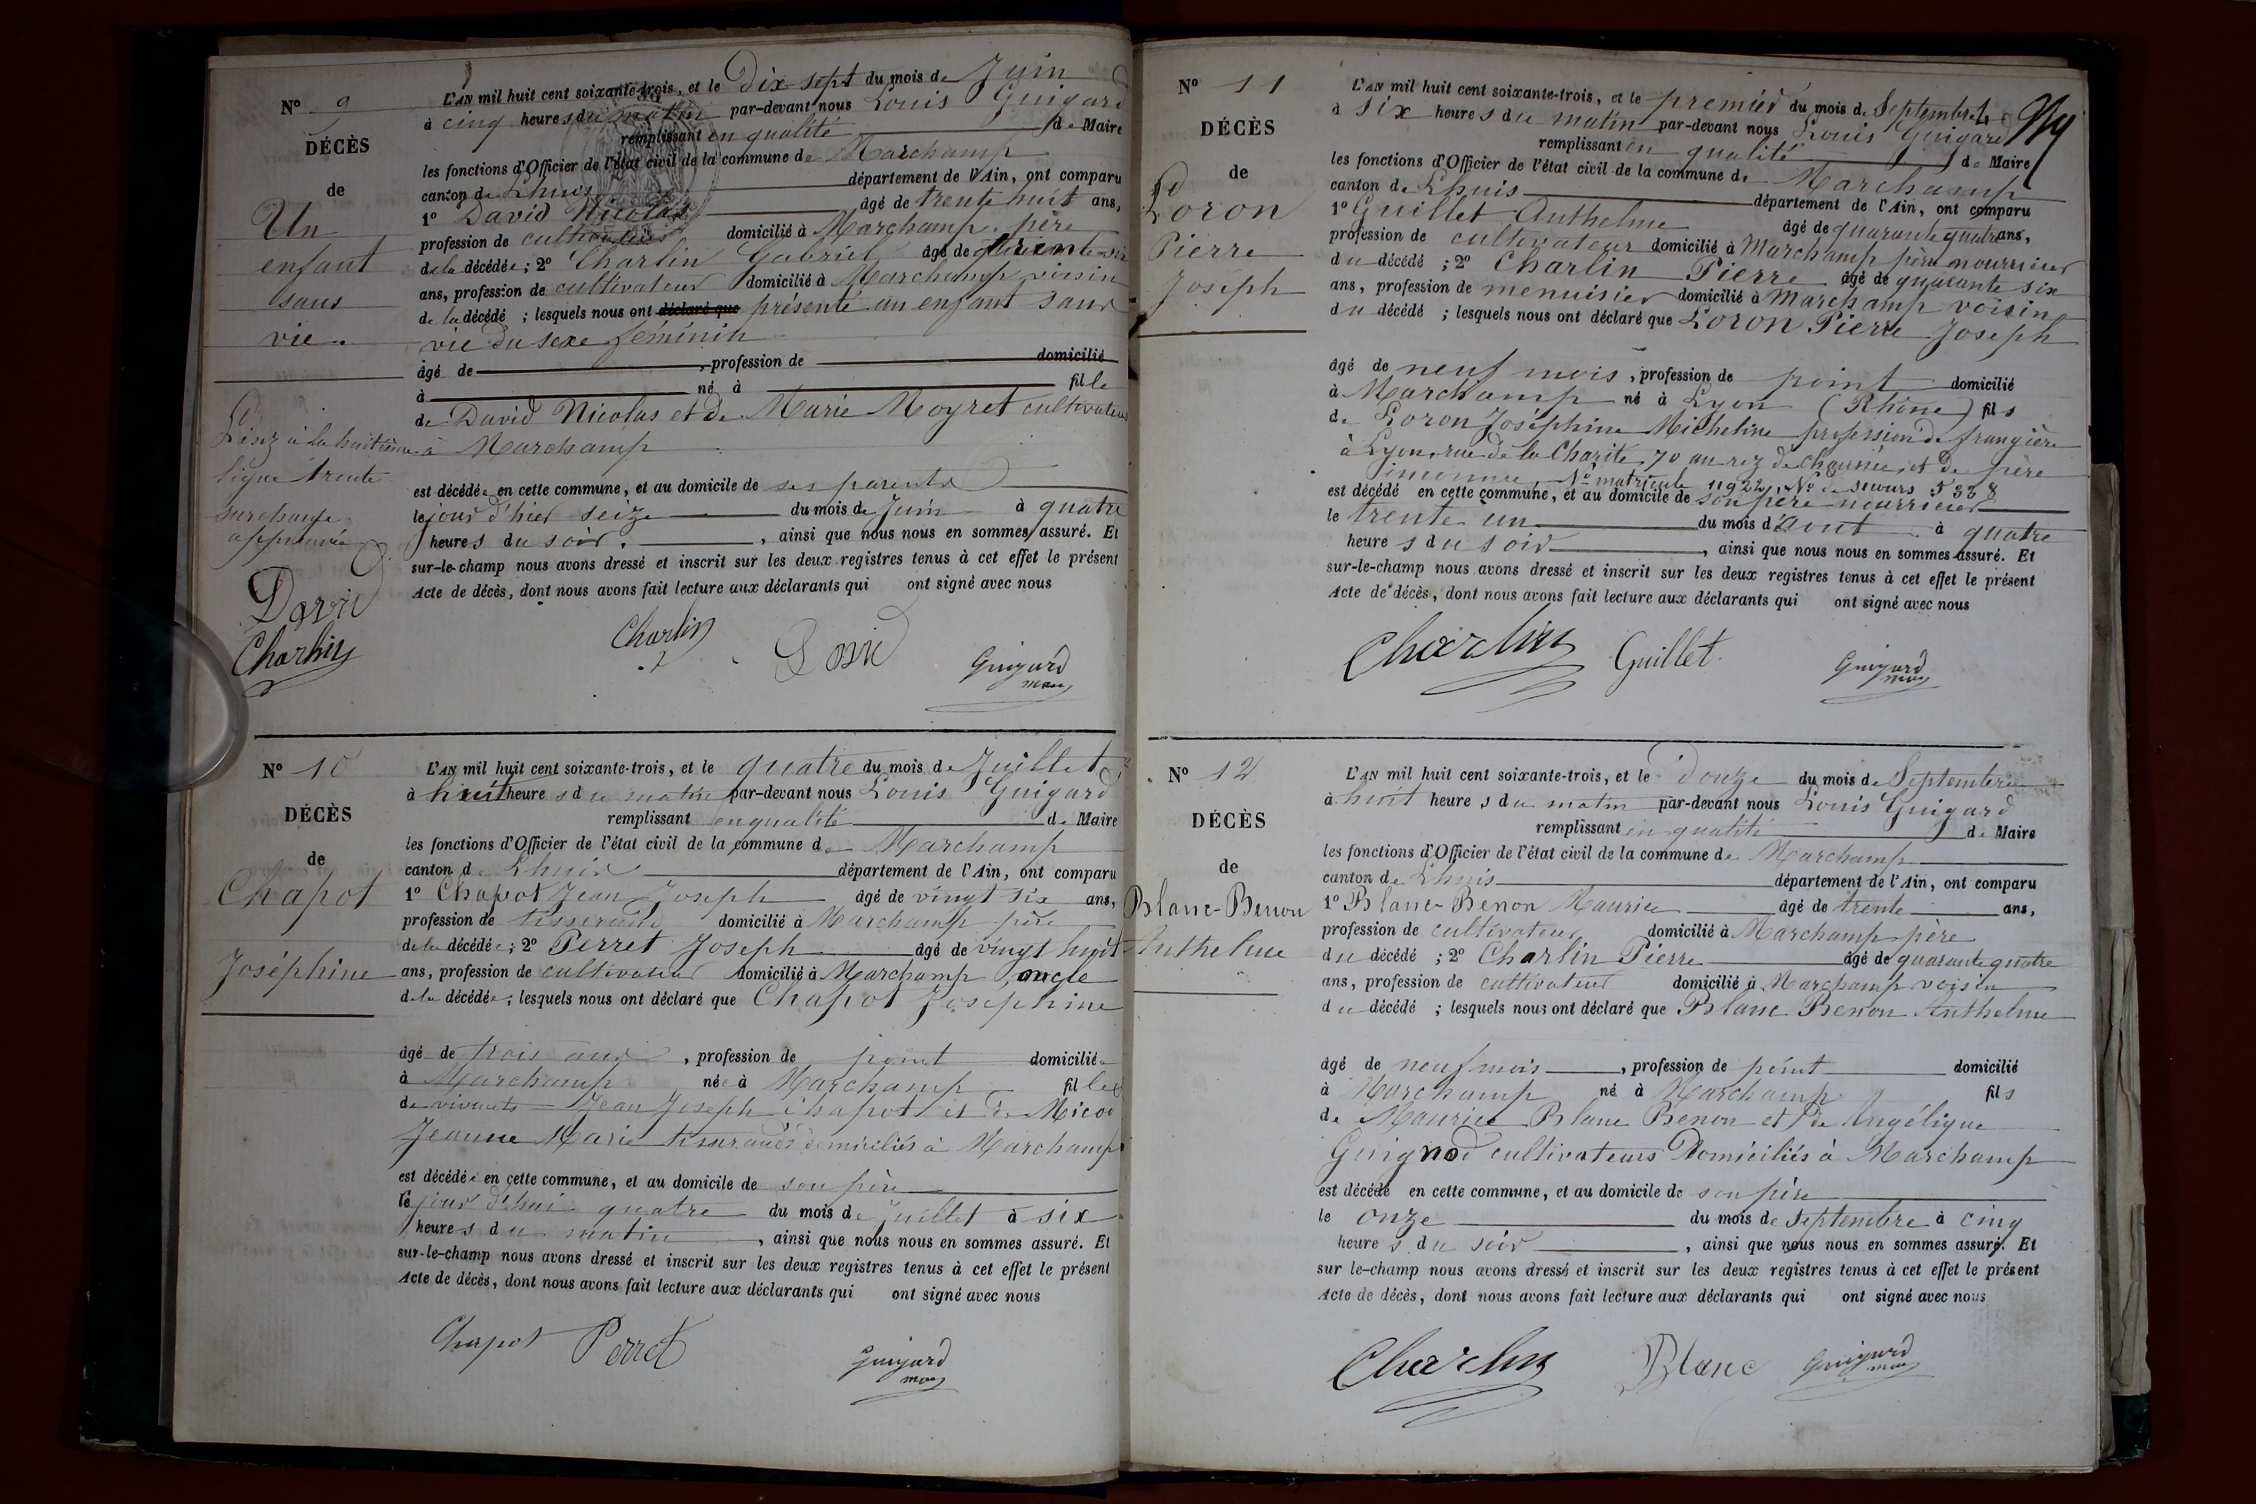 N° 9
DÉCÈS
de
Un
enfant
sans
vie.
Lisez à la huitième
ligne trente
surcharge
approuvée
David
Charlin
L'AN mil huit cent soixante-trois, et le Dix sept du mois de Juin
à cinq heures du matin par-devant nous Louis Guigard
remplissant en qualité de Maire
les fonctions d'Officier de l'état civil de la commune de Marchamp
canton de Lhuis département de l'Ain, ont comparu
1° David Nicolas âgé de trente huit ans,
profession de cultivateur domicilié à Marchamp, père
de la décédée ; 2° Charlin Gabriel âgé de trente six
ans, profession de cultivateur domicilié à Marchamp voisin
de la décédé ; lesquels nous ont déclaré que présenté un enfant sans
vie du sexe féminin
âgé de , profession de domicilié
à né à fille
de David Nicolas et de Marie Moyret cultivateurs
à Marchamp
est décédée en cette commune, et au domicile de ses parents
le jour d'hier seize du mois de Juin à quatre
heures du soir. , ainsi que nous nous en sommes assuré. Et
sur-le-champ nous avons dressé et inscrit sur les deux registres tenus à cet effet le présent
Acte de décès, dont nous avons fait lecture aux déclarants qui ont signé avec nous
Charlin David Guigard
maire
N° 10
DÉCÈS
de
Chapot
Joséphine
L'AN mil huit cent soixante-trois, et le quatre du mois de Juillet
à huit heures du matin par-devant nous Louis Guigard
remplissant en qualité de Maire
les fonctions d'Officier de l'état civil de la commune de Marchamp
canton de Lhuis département de l'Ain, ont comparu
1° Chapot Jean Joseph âgé de vingt six ans,
profession de tisserand domicilié à Marchamp père
de la décédée ; 2° Perret Joseph âgé de vingt huit
ans, profession de cultivateur domicilié à Marchamp, oncle
de la décédée ; lesquels nous ont déclaré que Chapot Joséphine
âgé de trois ans , profession de point domiciliée
à Marchamp née à Marchamp fille
de vivants Jean Joseph Chapot et de Micod
Jeanne Marie tisserands domiciliés à Marchamp
est décédée en cette commune, et au domicile de son père
le jour d'hui quatre du mois de Juillet à six
heures du matin , ainsi que nous nous en sommes assuré. Et
sur-le-champ nous avons dressé et inscrit sur les deux registres tenus à cet effet le présent
Acte de décès, dont nous avons fait lecture aux déclarants qui ont signé avec nous
Chapot Perret Guigard
maire
N° 11
DÉCÈS
de
Loron
Pierre
Joseph
L'AN mil huit cent soixante-trois, et le premier du mois de Septembre
à six heures du matin par-devant nous Louis Guigard
remplissant en qualité de Maire
les fonctions d'Officier de l'état civil de la commune de Marchamp
canton de Lhuis département de l'Ain, ont comparu
1° Guillet Anthelme âgé de quarante quatre ans,
profession de cultivateur domicilié à Marchamp père nourricier
du décédé ; 2° Charlin Pierre âgé de quarante six
ans, profession de menuisier domicilié à Marchamp voisin
du décédé ; lesquels nous ont déclaré que Loron Pierre Joseph
âgé de neuf mois , profession de point domicilié
à Marchamp né à Lyon (Rhône) fils
de Loron Joséphine Micheline profession de frangière
à Lyon, rue de la Charité 70 au rez de chaussée, et de père
inconnu, N° matricule 11922, N° de secours 5338
est décédé en cette commune, et au domicile de son père nourricier
le trente un du mois d'aout à quatre
heures du soir , ainsi que nous nous en sommes assuré. Et
sur-le-champ nous avons dressé et inscrit sur les deux registres tenus à cet effet le présent
Acte de décès, dont nous avons fait lecture aux déclarants qui ont signé avec nous
Charlin Guillet Guigard
maire
N° 12
DÉCÈS
de
Blanc-Benon
Anthelme
L'AN mil huit cent soixante-trois, et le douze du mois de Septembre
à huit heures du matin par-devant nous Louis Guigard
remplissant en qualité de Maire
les fonctions d'Officier de l'état civil de la commune de Marchamp
canton de Lhuis département de l'Ain, ont comparu
1° Blanc-Benon Maurice âgé de trente ans,
profession de cultivateur domicilié à Marchamp père
du décédé ; 2° Charlin Pierre âgé de quarante quatre
ans, profession de cultivateur domicilié à Marchamp voisin
du décédé ; lesquels nous ont déclaré que Blanc Benon Anthelme
âgé de neuf mois , profession de point domicilié
à Marchamp né à Marchamp fils
de Maurice Blanc Benon et de Angélique
Guignod cultivateurs Domiciliés à Marchamp
est décédé en cette commune, et au domicile de son père
le onze du mois de Septembre à cinq
heures du soir , ainsi que nous nous en sommes assuré. Et
sur le-champ nous avons dressé et inscrit sur les deux registres tenus à cet effet le présent
Acte de décès, dont nous avons fait lecture aux déclarants qui ont signé avec nous
Charlin Blanc Guigard
maire